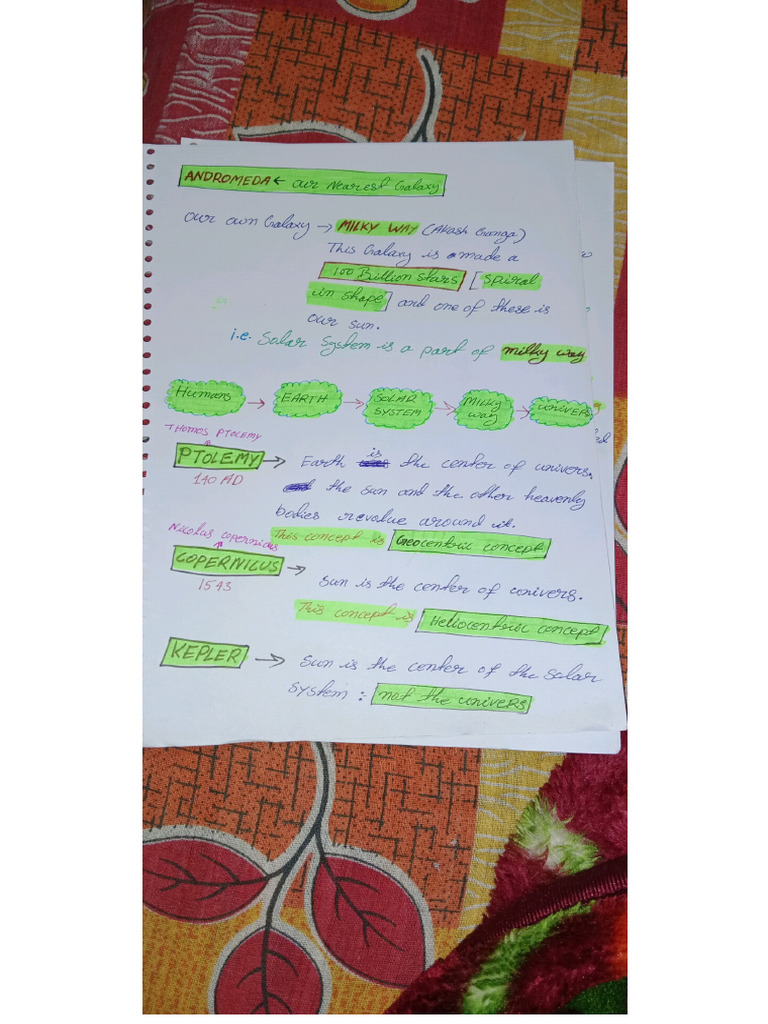 ANDROMEDA ← our Nearest Galaxy
our own Galaxy → MILKY WAY (Akash Ganga)
This Galaxy is made a
100 Billion stars [spiral
in shape] and one of these is
our sun.
i.e. Solar System is a part of milky way
Humans → EARTH → SOLAR SYSTEM → MILKY WAY → UNIVERS
THOMOS PTOLEMY
PTOLEMY → Earth is the center of univers.
140 AD
the sun and the other heavenly
bodies revolue around it.
This concept is Geocentric concept
Nicolus copernicus
COPERNICUS →
1543
sun is the center of univers.
This concept is Heliocentric concept
KEPLER → sun is the center of the solar
system : not the univers